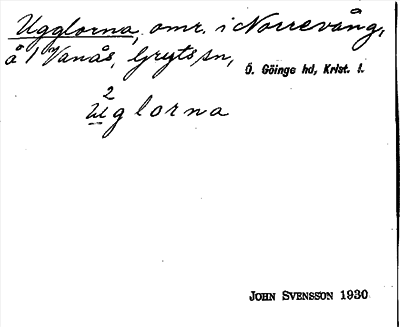 Ugglorna, omr. i Norrevång,
å 1/4 Vanås, Gryts sn, Ö. Göinge hd, Krist. l.
2
Uglorna
JOHN SVENSSON 1930